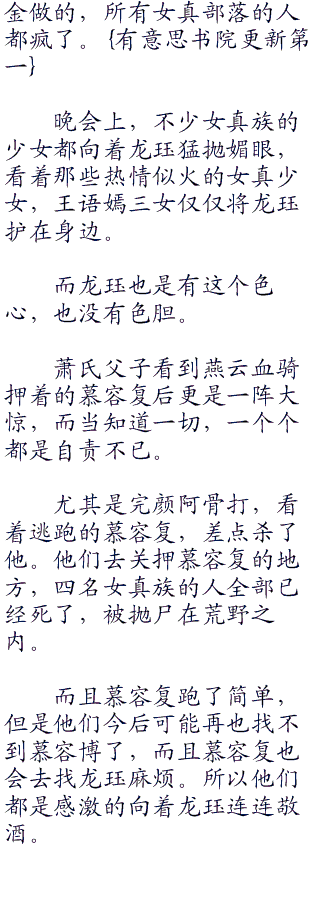 金做的，所有女真部落的人
都疯了。{有意思书院更新第
一}
晚会上，不少女真族的
少女都向着龙珏猛抛媚眼，
看着那些热情似火的女真少
女，王语嫣三女仅仅将龙珏
护在身边。
而龙珏也是有这个色
心，也没有色胆。
萧氏父子看到燕云血骑
押着的慕容复后更是一阵大
惊，而当知道一切，一个个
都是自责不已。
尤其是完颜阿骨打，看
着逃跑的慕容复，差点杀了
他。他们去关押慕容复的地
方，四名女真族的人全部已
经死了，被抛尸在荒野之
内。
而且慕容复跑了简单，
但是他们今后可能再也找不
到慕容博了，而且慕容复也
会去找龙珏麻烦。所以他们
都是感激的向着龙珏连连敬
酒。